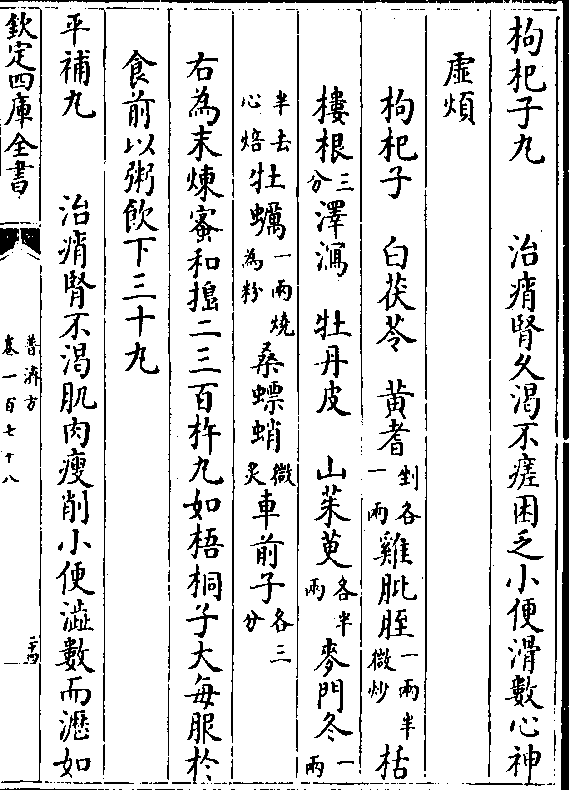 枸杞子丸　治痟腎久渴不瘥困乏小便滑數心神
虛煩
枸杞子　白茯苓　黃耆剉各一兩　雞肶胵一兩半微炒　栝
樓根三分　澤瀉　牡丹皮　山茱萸各半兩　麥門冬一兩
半去心焙　牡蠣一兩燒為粉　桑螵蛸微炙　車前子各三分
右為末煉蜜和搗二三百杵丸如梧桐子大每服於
食前以粥飲下三十丸
平補丸　治痟腎不渴肌肉瘦削小便澁數而瀝如
欽定四庫全書
普濟方
卷一百七十八
二十四